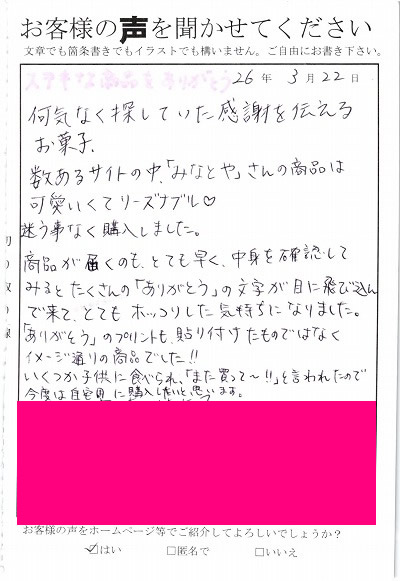 お客様の声を聞かせてください
文章でも箇条書きでもイラストでも構いません。ご自由にお書き下さい。
ステキな商品をありがとう
26年 3月22日
何気なく探していた感謝を伝える
お菓子.
数あるサイトの中、「みなとや」さんの商品は
可愛いくてリーズナブル♡
迷う事なく購入しました。
商品が届くのも、とても早く、中身を確認して
みるとたくさんの「ありがとう」の文字が目に飛び込ん
で来て、とても ホッコリした気持ちになりました。
「ありがとう」のプリントも、貼り付けたものではなく
イメージ通りの商品でした!!
いくつか子供に食べられ、「また買って〜!!」と言われたので
今度は自宅用に購入したいと思います。
切り取り線
お客様の声をホームページ等でご紹介してよろしいでしょうか?
☑はい □匿名で □いいえ